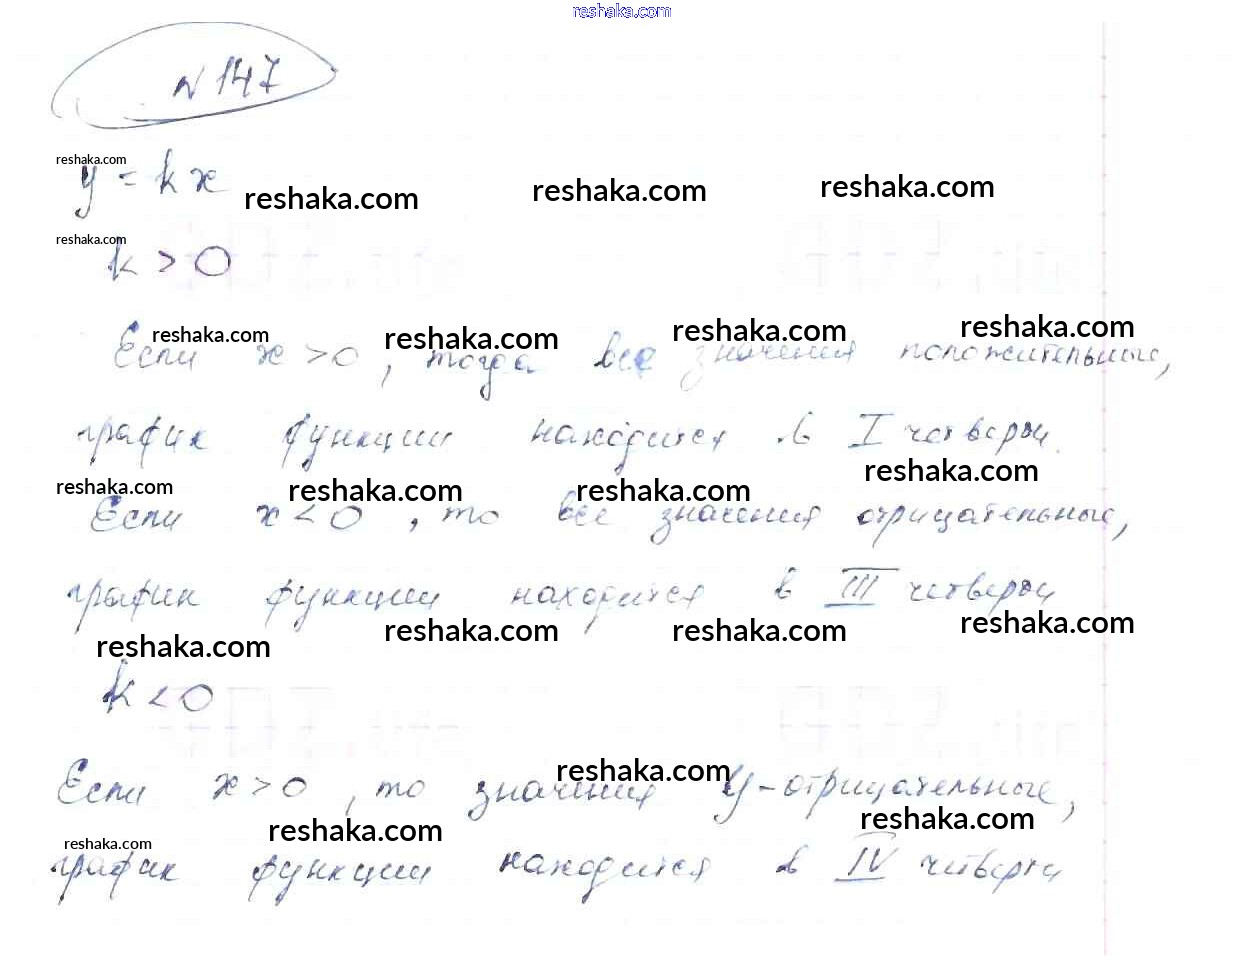 reshaka.com
№ 147
reshaka.com
y = kx
reshaka.com reshaka.com reshaka.com
reshaka.com
k > 0
reshaka.com reshaka.com reshaka.com reshaka.com
Если x > 0, тогда все значения положительные,
график функции находится в I четверти.
reshaka.com reshaka.com reshaka.com reshaka.com
Если x < 0, то все значения отрицательные,
график функции находится в III четверти
reshaka.com reshaka.com reshaka.com reshaka.com
k < 0
reshaka.com
Если x > 0, то значения y - отрицательные,
reshaka.com reshaka.com
reshaka.com
график функции находится в IV четверти